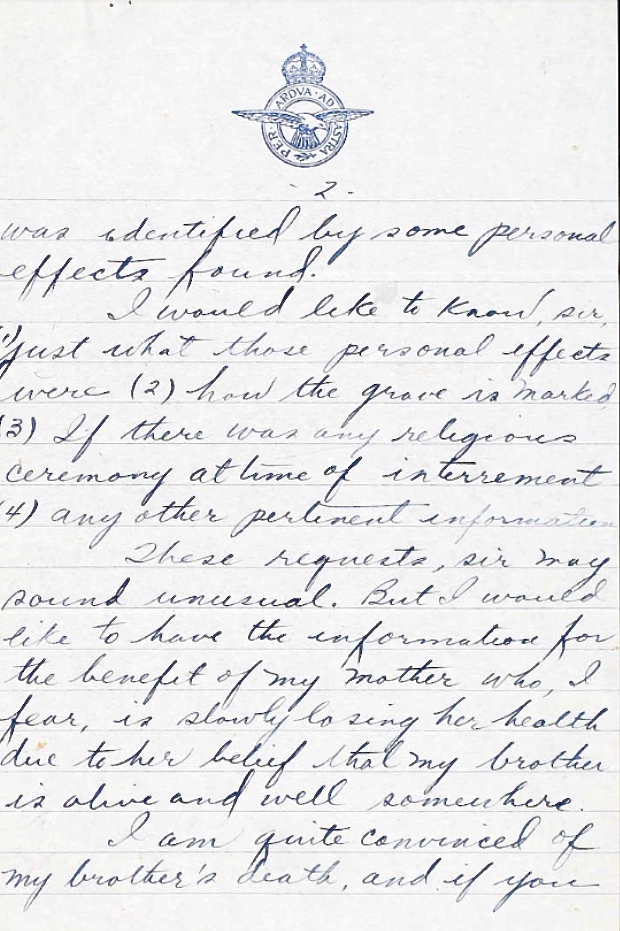 PER · ARDVA · AD ASTRA
- 2 -
was identified by some personal
effects found.
I would like to know, sir,
(1) just what those personal effects
were (2) how the grave is marked
(3) If there was any religious
ceremony at time of interrement
(4) any other pertinent information
These requests, sir may
sound unusual. But I would
like to have the information for
the benefit of my mother who, I
fear, is slowly losing her health
due to her belief that my brother
is alive and well somewhere.
I am quite convinced of
my brother's death, and if you